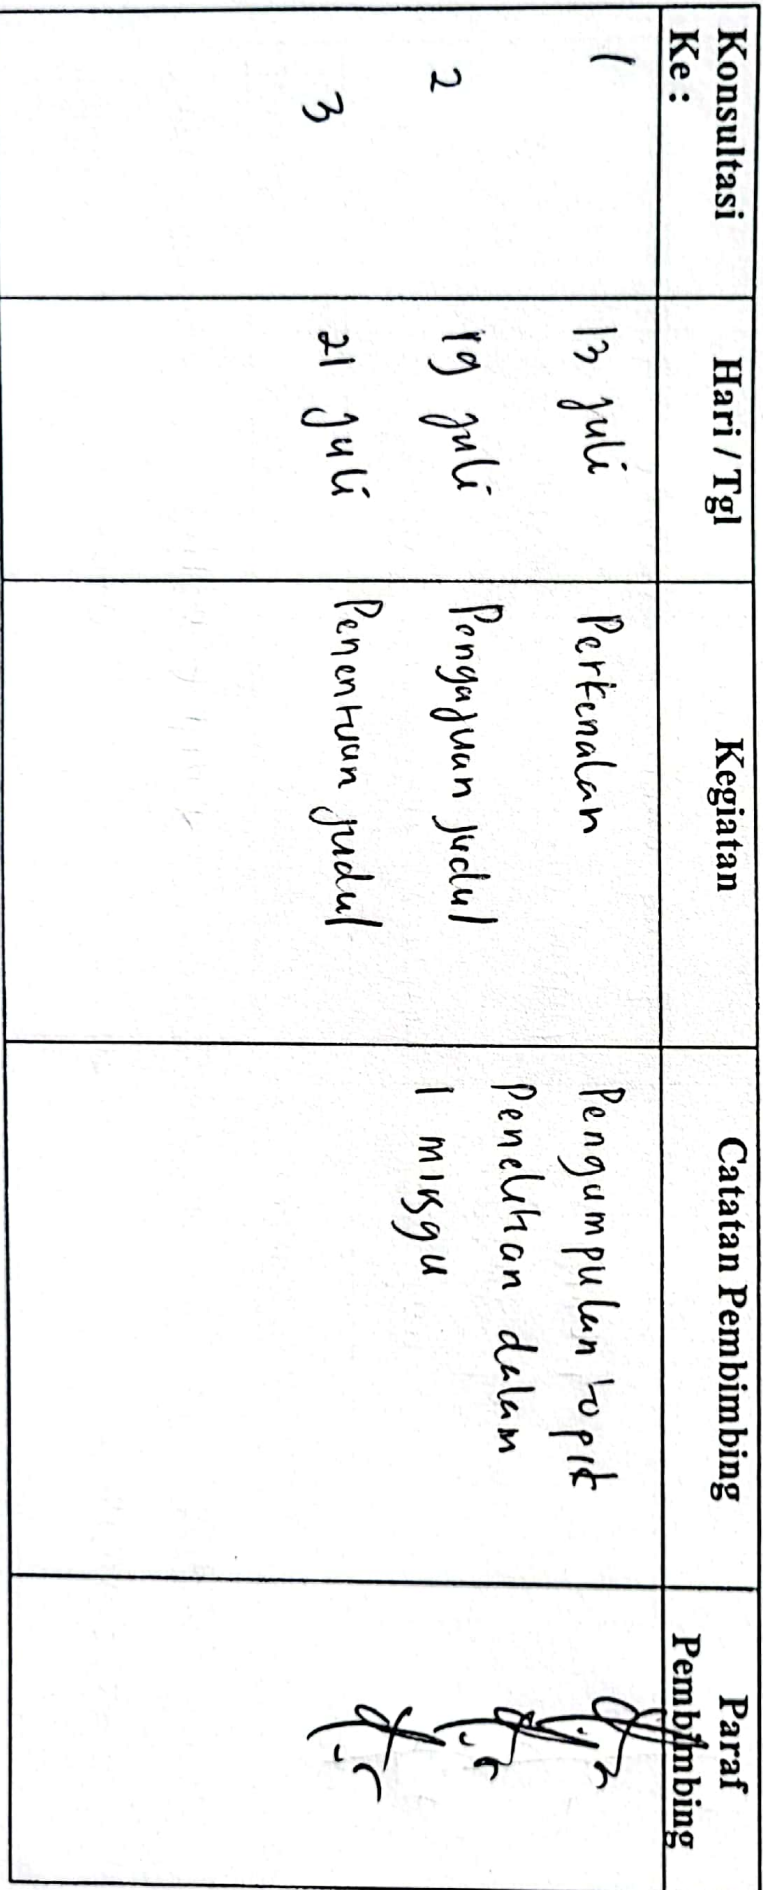 Konsultasi Ke : Hari / Tgl Kegiatan Catatan Pembimbing Paraf Pembimbing
1 13 Juli Perkenalan Pengumpulan topik
Penelitian dalam
2 19 Juli Pengajuan judul 1 minggu
3 21 Juli Penentuan judul